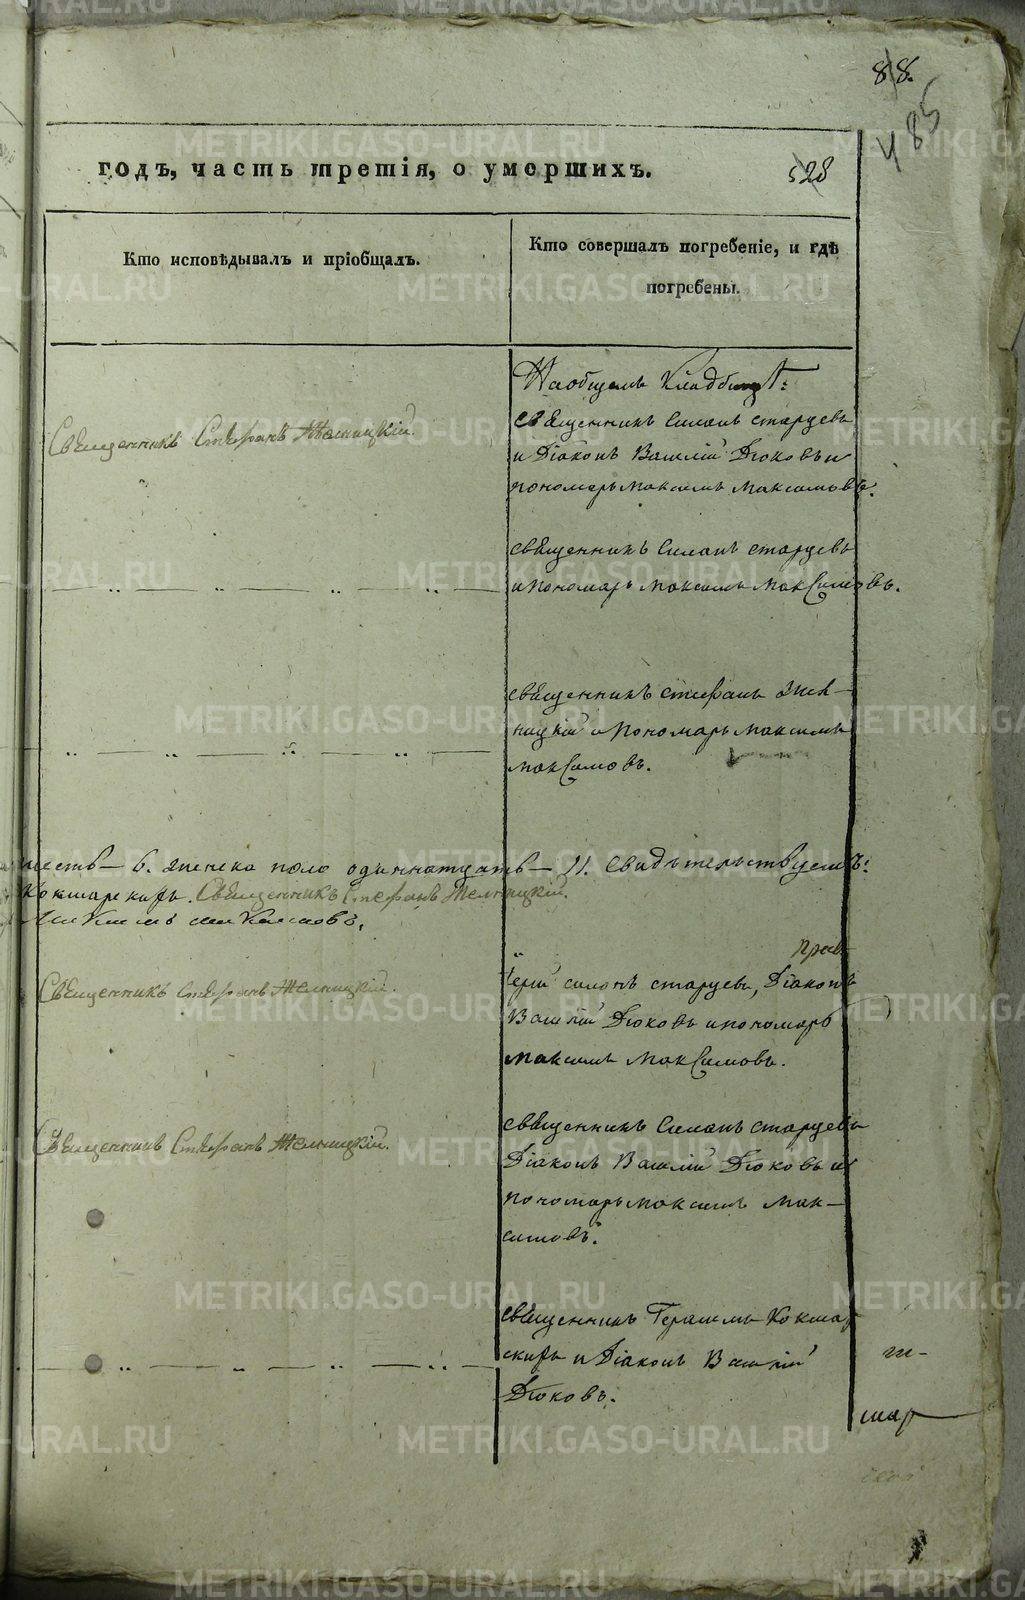 88.
485
годъ, часть третія, о умершихъ.
528
Кто исповѣдывалъ и пріобщалъ.
Кто совершалъ погребеніе, и гдѣ
погребены.
На общемъ Кладбищѣ:
Священникъ Стефанъ Желницкій.
священникъ Симонъ старцевъ
и Діаконъ Василій Дюковъ и
пономарь максимъ максимовъ.
священникъ Симонъ старцевъ
и пономарь максимъ макСимовъ.
священникъ стефанъ
ницкій и пономарь максимъ
макСимовъ.
шесть — 6. женска поло одиннатцать — 11. свидѣтельствуемъ:
Кокшарскифъ. Священникъ Стефанъ Желницкій.
прото
Священникъ Стефанъ Желницкій.
іерій симонъ старцевъ, Діаконъ
Василій Дюковъ и пономарь
максимъ макСимовъ.
Священникъ Стефанъ Желницкій.
священникъ Симонъ старцевъ
Діаконъ Василій Дюковъ и
пономарь максимъ мак—
симовъ.
священникъ Герасимъ Кокшар
скифъ и Діаконъ Василій
Дюковъ.
мар
METRIKI.GASO-URAL.RU